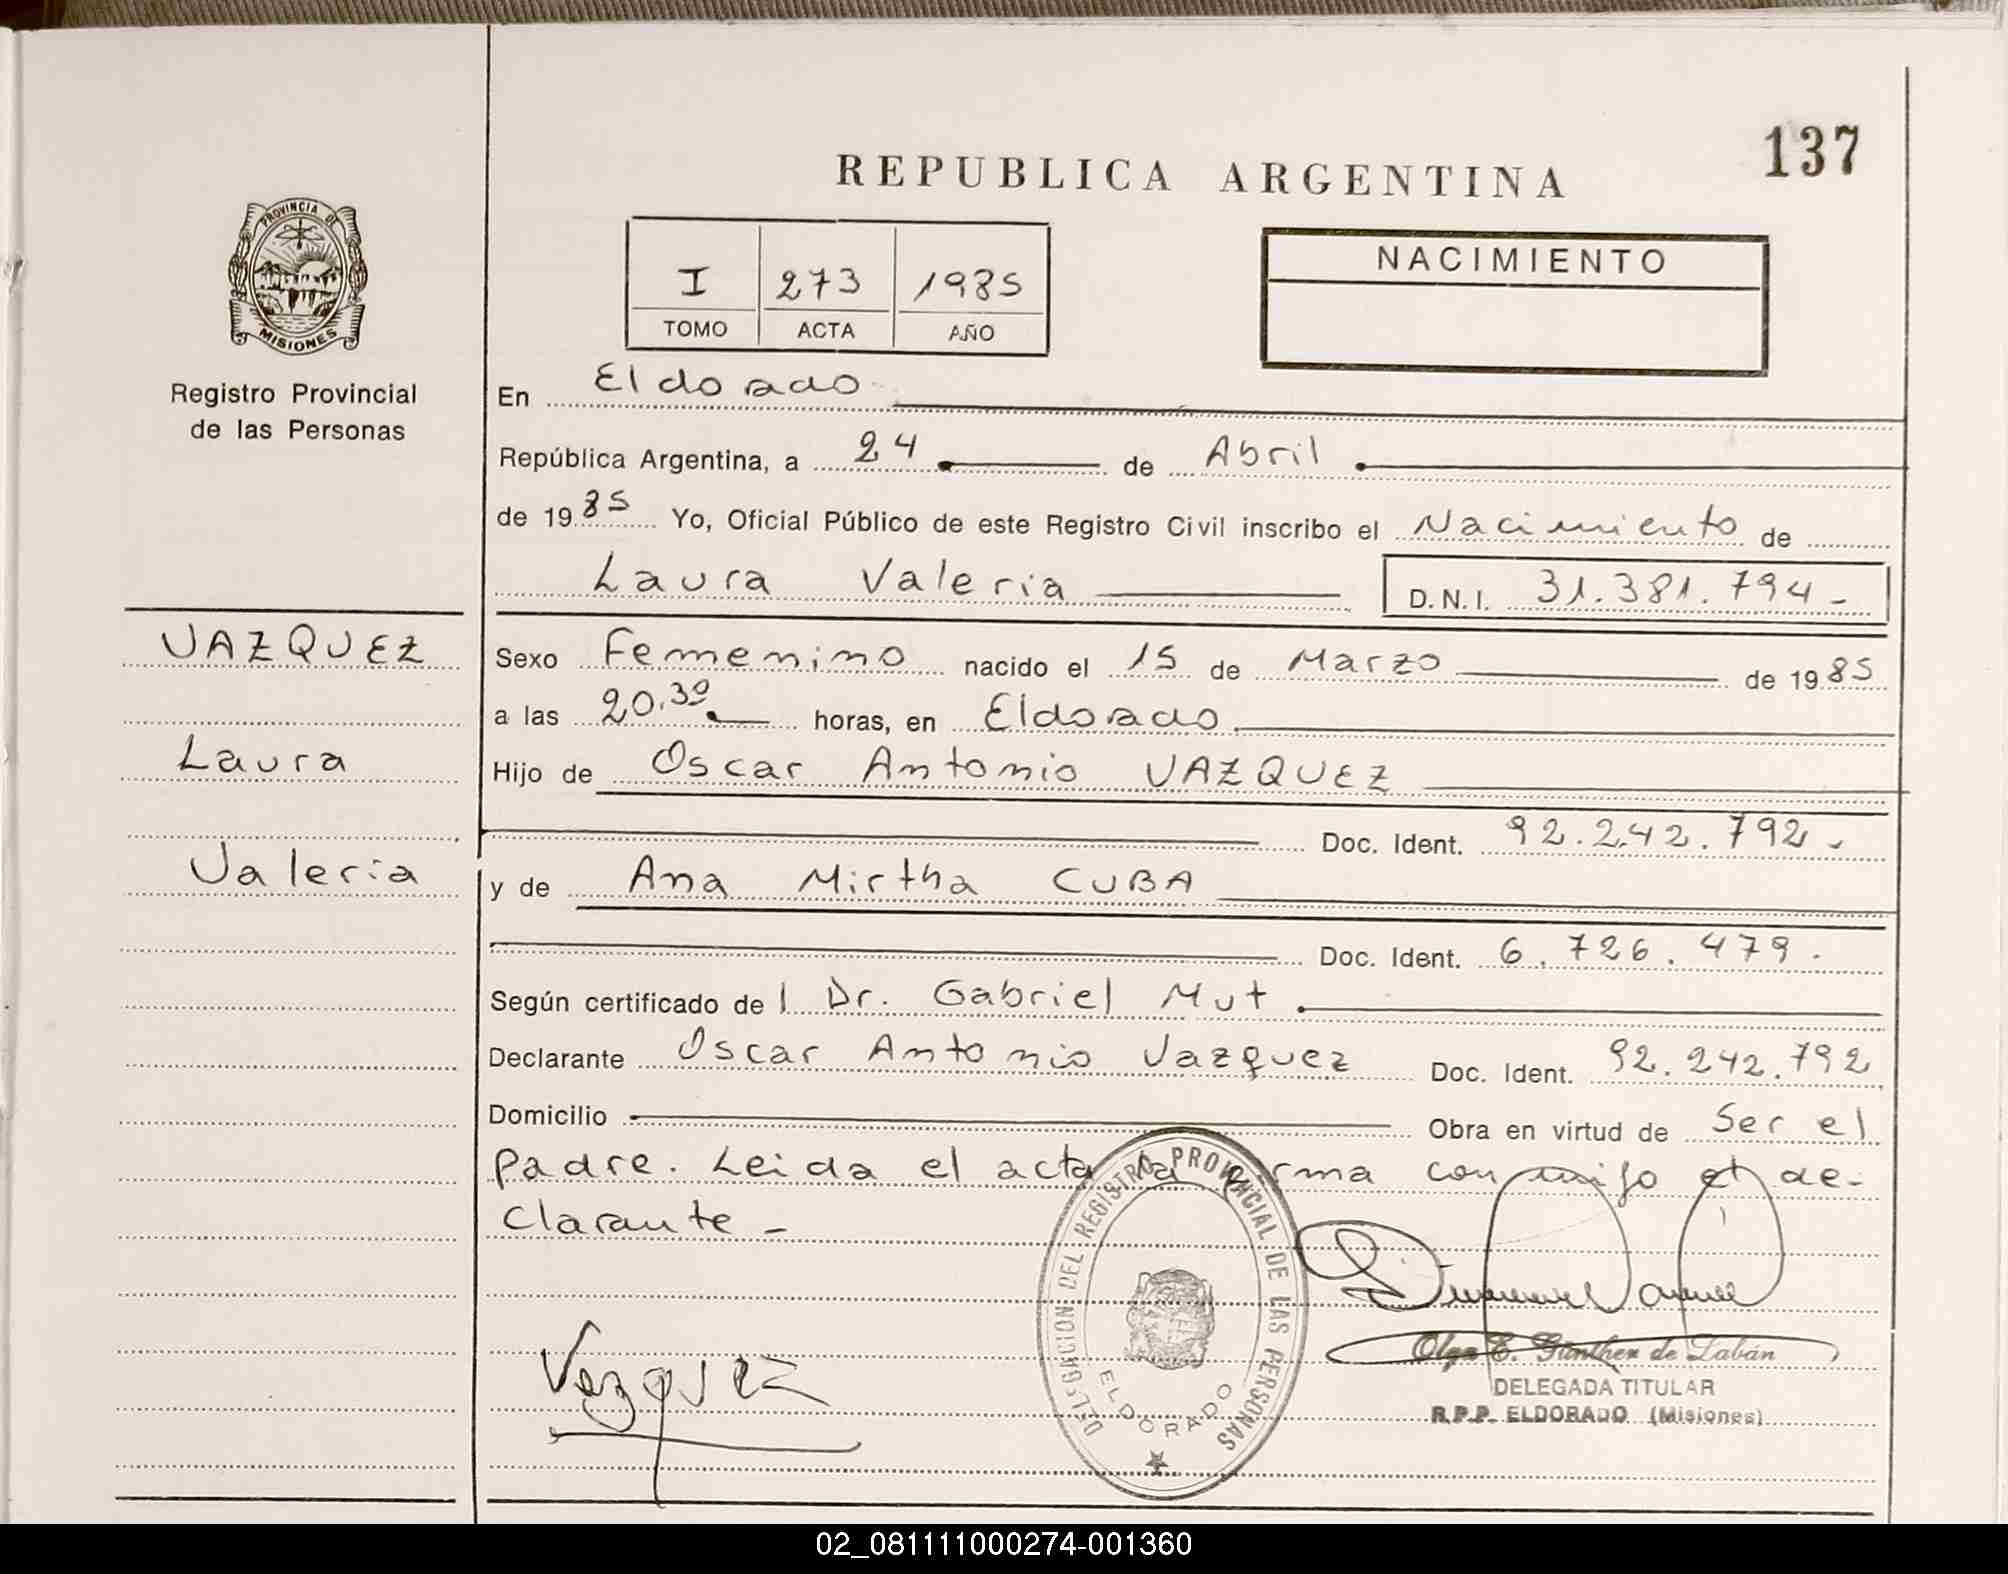 137
REPUBLICA ARGENTINA
PROVINCIA DE
MISIONES
Registro Provincial
de las Personas
I 273 1985
TOMO ACTA AÑO
NACIMIENTO
En Eldorado
República Argentina, a 24 de Abril
de 1985 Yo, Oficial Público de este Registro Civil inscribo el Nacimiento de
Laura Valeria D.N.I. 31.381.794-
VAZQUEZ
Laura
Valeria
Sexo Femenino nacido el 15 de Marzo de 1985
a las 20.30 horas, en Eldorado
Hijo de Oscar Antonio VAZQUEZ
Doc. Ident. 92.242.792-
y de Ana Mirtha CUBA
Doc. Ident. 6.726.479.
Según certificado del Dr. Gabriel Mut
Declarante Oscar Antonio Vazquez Doc. Ident. 92.242.792
Domicilio Obra en virtud de Ser el
padre. Leida el acta la firma conmigo el de-
clarante-
DELEGACION DEL REGISTRO PROVINCIAL DE LAS PERSONAS
ELDORADO
Vazquez
Olga E. Günther de Labán
DELEGADA TITULAR
R.P.P. ELDORADO (Misiones)
02_081111000274-001360